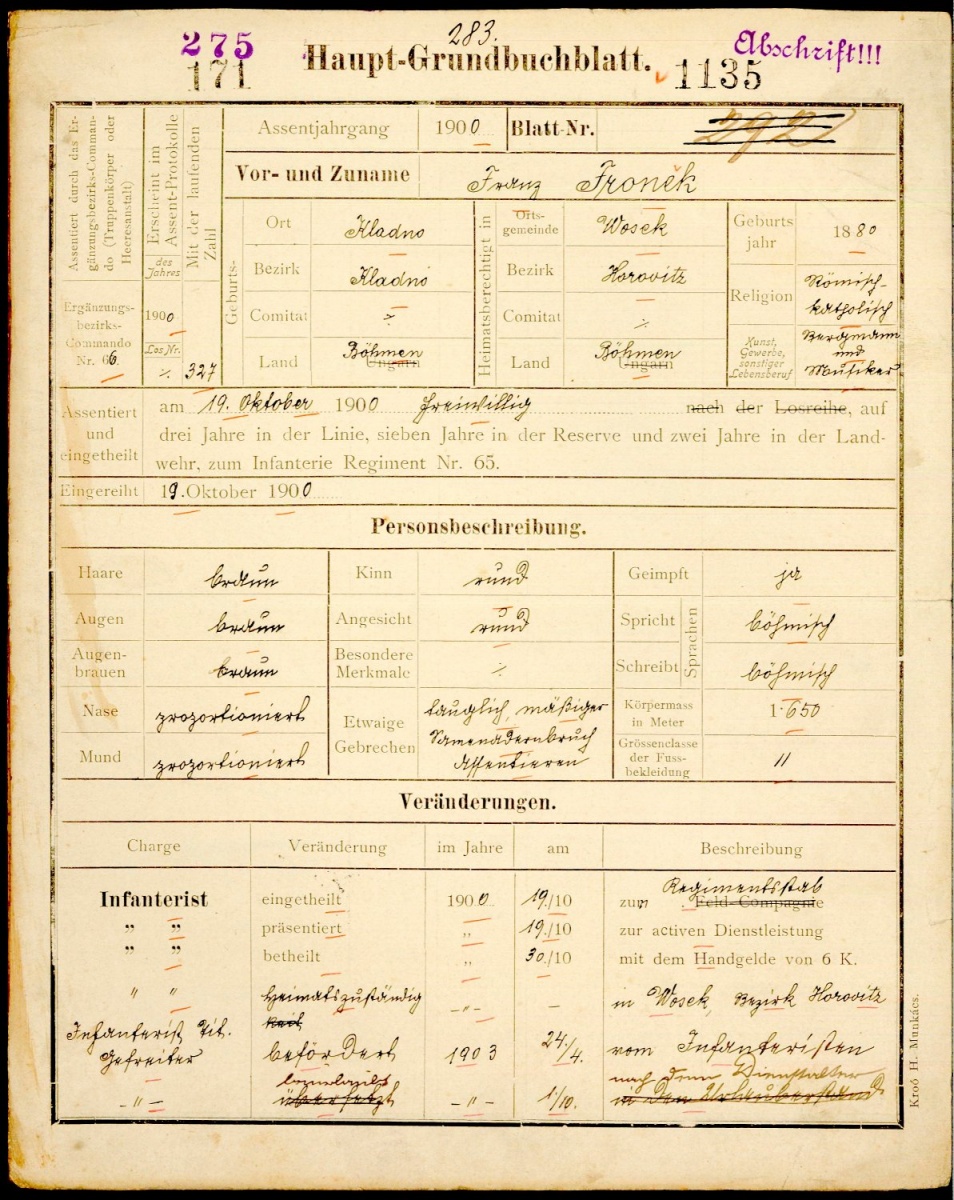 275
283.
Abschrift!!!
171
Haupt-Grundbuchblatt.
1135
Assentiert durch das Er-
gänzungsbezirks-Comman-
do (Truppenkörper oder
Heeresanstalt)
Ergänzungs-
bezirks-
Commando
Nr. 66.
Erscheint im
Assent-Protokolle
des
Jahres
1900
Los Nr.
Mit der laufenden
Zahl
327
Assentjahrgang 1900 Blatt-Nr.
Vor- und Zuname Franz Fronek
Geburts-
Ort Kladno
Bezirk Kladno
Comitat ./.
Land Böhmen
Ungarn
Heimatsberechtigt in
Orts-
gemeinde Wosek
Bezirk Horovitz
Comitat ./.
Land Böhmen
Ungarn
Geburts
jahr 1880
Religion Römisch-
katholisch
Kunst,
Gewerbe,
sonstiger
Lebensberuf
Bergmann
und
Musiker
Assentiert
und
eingetheilt
am 19. Oktober 1900 freiwillig nach der Losreihe, auf
drei Jahre in der Linie, sieben Jahre in der Reserve und zwei Jahre in der Land-
wehr, zum Infanterie Regiment Nr. 65.
Eingereiht 19. Oktober 1900
Personsbeschreibung.
Haare braun
Augen braun
Augen-
brauen braun
Nase proportioniert
Mund proportioniert
Kinn rund
Angesicht rund
Besondere
Merkmale ./.
Etwaige
Gebrechen
tauglich, mäßiger
Samenadernbruch
Assentieren
Geimpft ja
Sprachen
Spricht böhmisch
Schreibt böhmisch
Körpermass
in Meter 1·650
Grössenclasse
der Fuss-
bekleidung 11
Veränderungen.
Charge Veränderung im Jahre am Beschreibung
Regimentsstab
Infanterist eingetheilt 1900 19./10 zum Feld-Compagnie
" " präsentiert " 19./10 zur activen Dienstleistung
" " betheilt " 30./10 mit dem Handgelde von 6 K.
" " Heimatszuständig -"- – in Wosek, Bezirk Horovitz
keit
Infanterist Tit.
Gefreiter befördert 1903 24./4. vom Infanteristen
nach dem Dienstalter
-"- übersetzt -"- 1./10. in den Urlauberstand
Kroó H. Munkács.